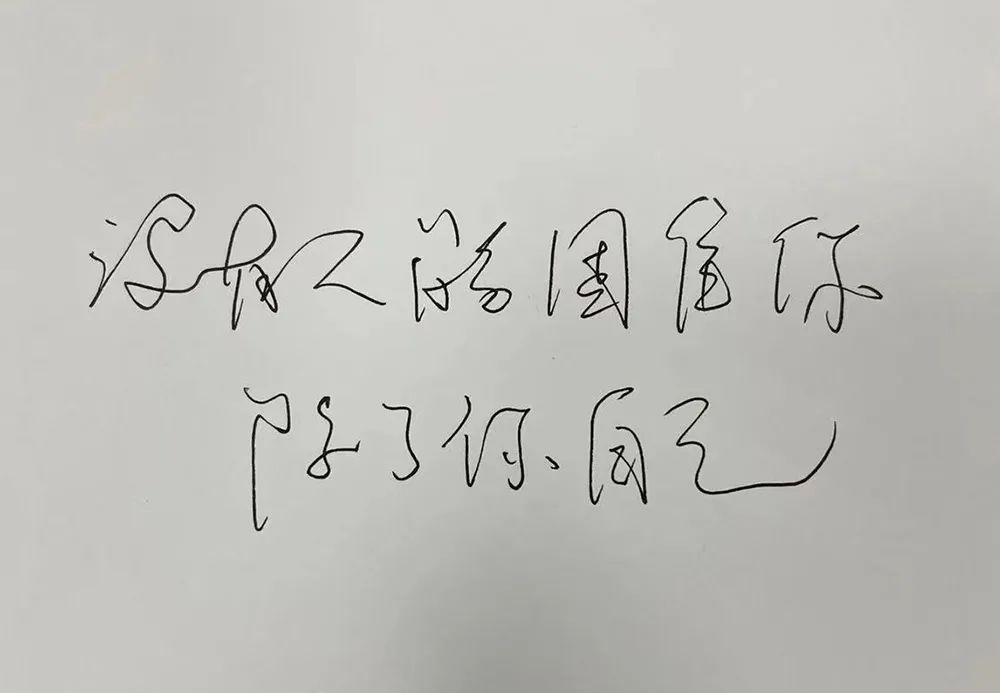 没有人能困住你
除了你自己